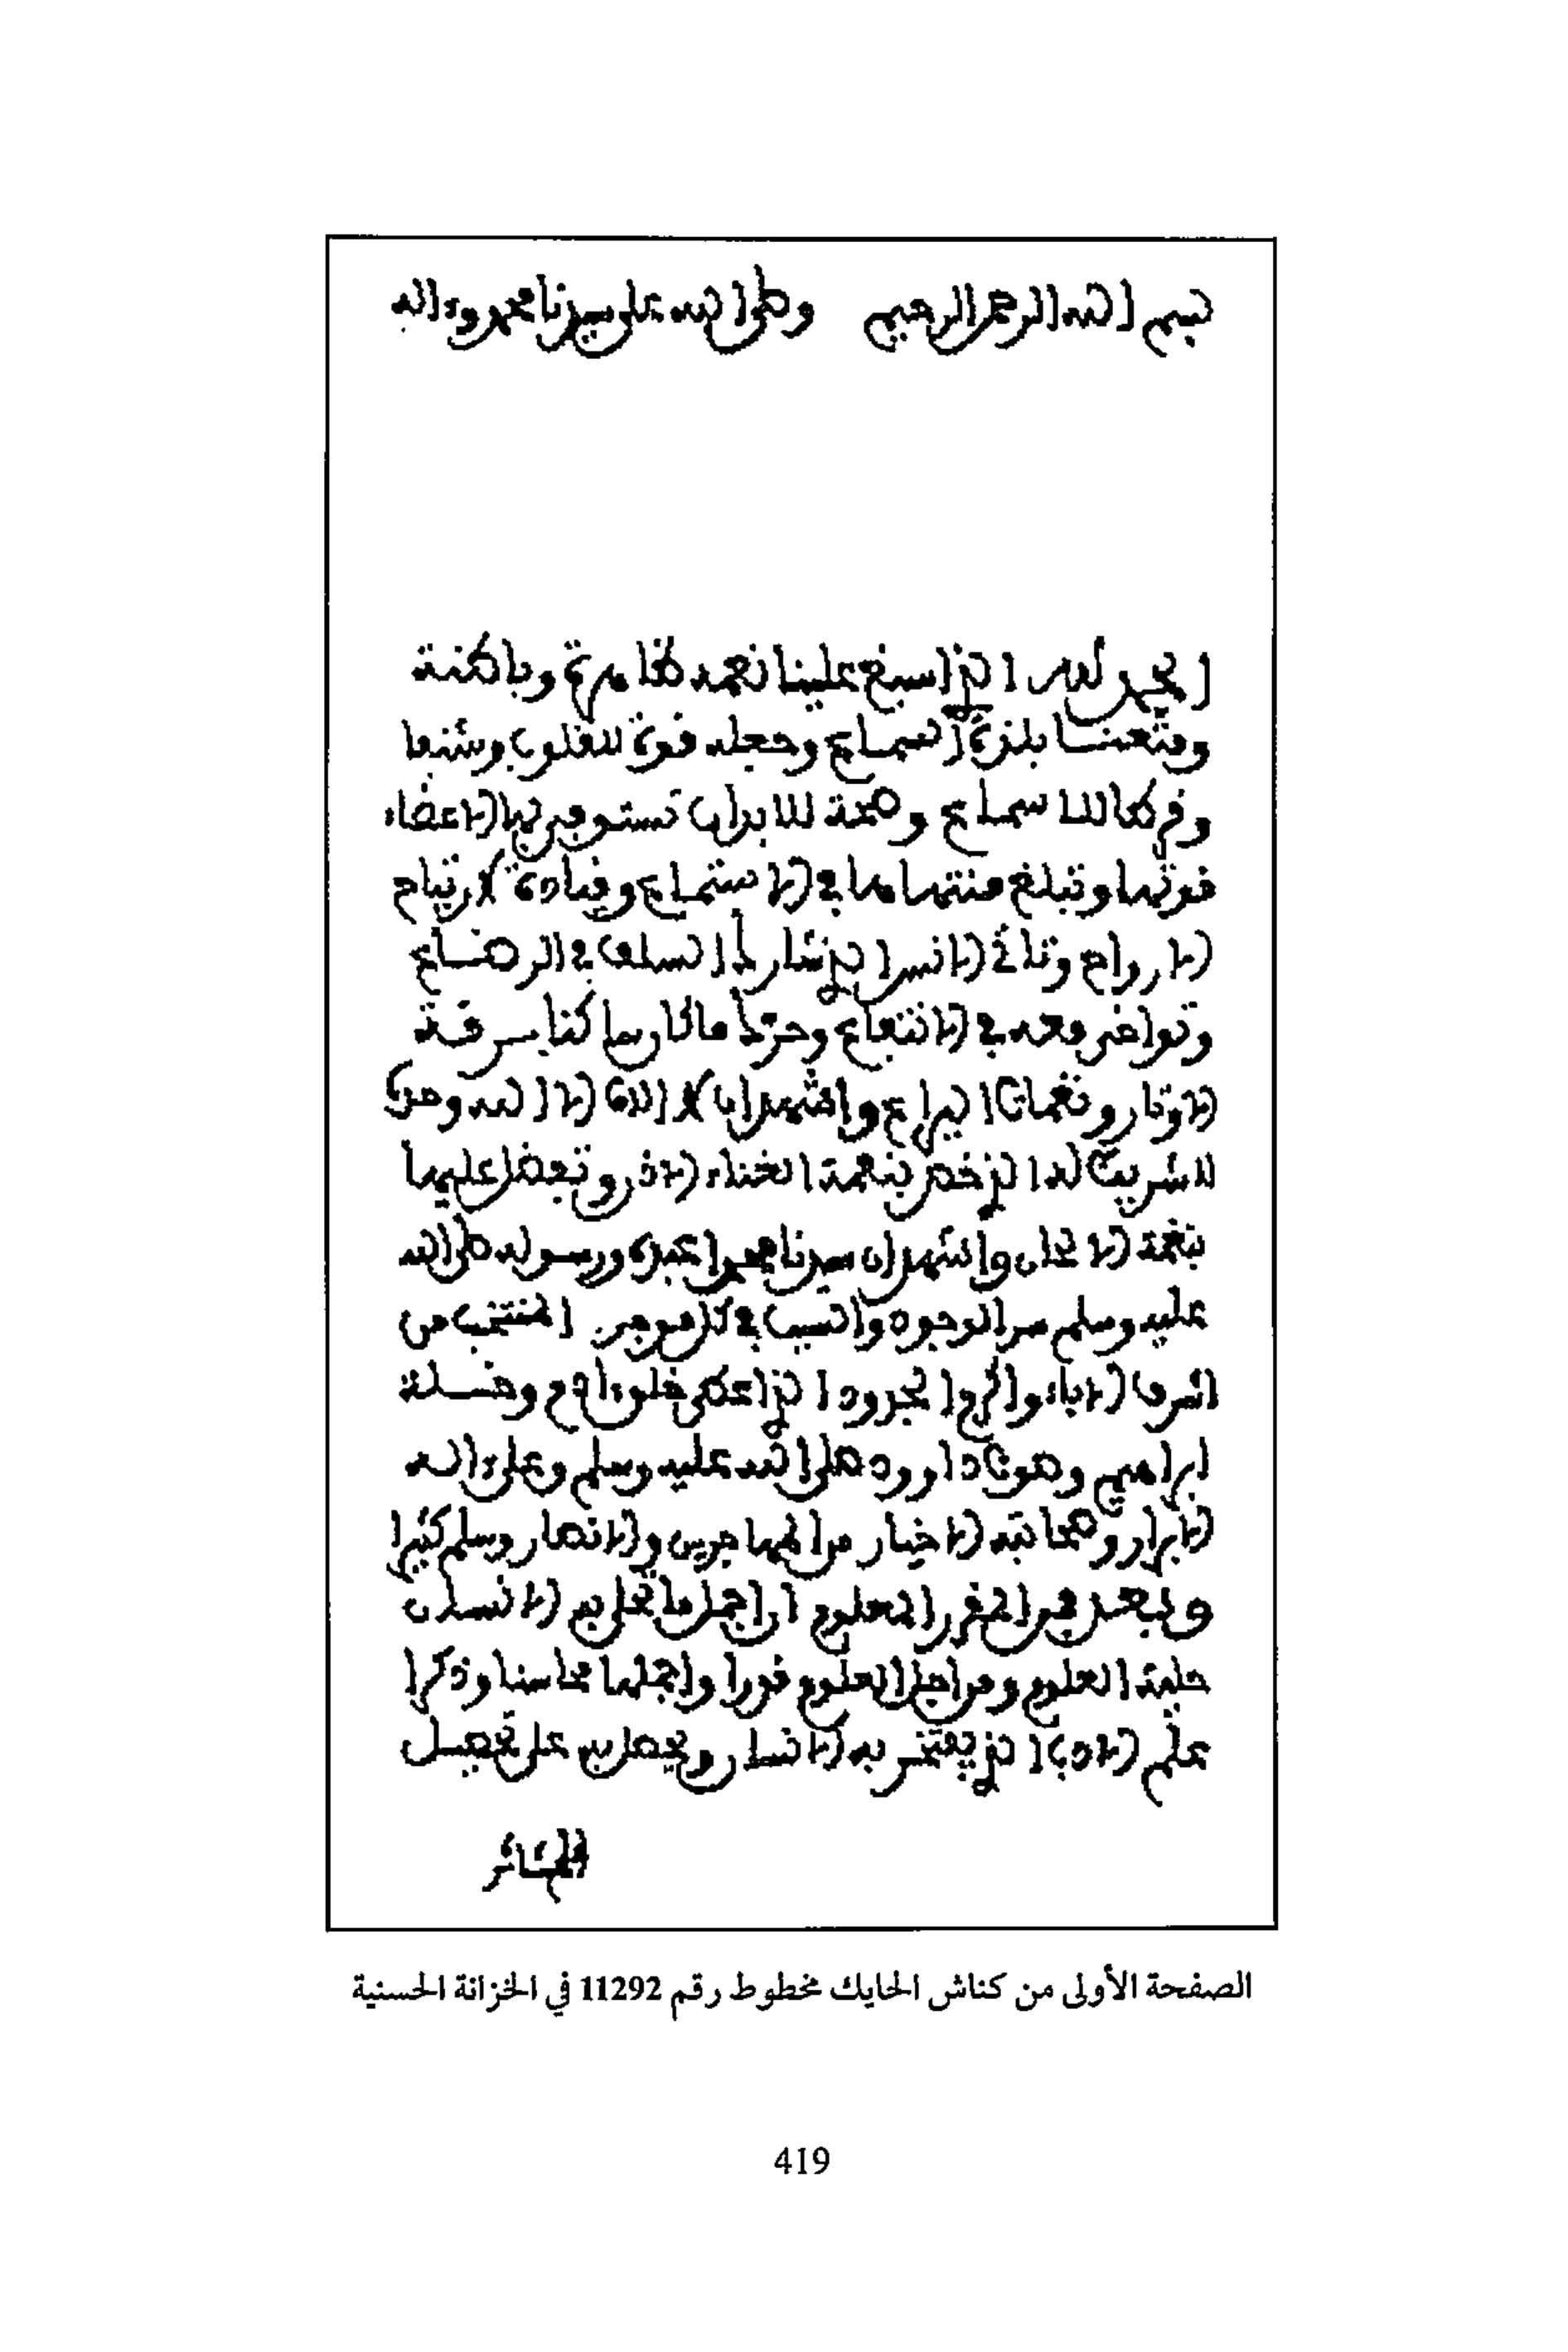 بسم الله الرحمن الرحيم وصلى الله على سيدنا محمد وءاله
الحمد لله الذي أسبغ علينا نعمه ظاهرة وباطنة
ومتعنا بلذة السماع وجعله قوة للقلوب وشنفا
وقرطا للاسماع وصحة للابدان تستوفي بها الاعضاء
قوتها وتبلغ منتهاها في الاستماع وقيادة لارتياح
الارواح وتاتي الانس الذي شارك السلف في الرضاع
وتواخى معه في الانتفاع وحرك ما كان ساكنا بسرقة
الاوتار ونغمات اليراع واشهد ان لا اله الا الله وحده لا
شريك له الذي خص بنعمة الغناء الاذن وتفضل عليها
بنغمة الالحان واشهد ان سيدنا محمدا عبده ورسوله صلى الله
عليه وسلم سر الوجود والسبب في كل موجود المنتخب من
اشرف الاباء واكرم الجدود الذي اعطي خلق ءادم وخلة
ابراهيم وصوت داوود صلى الله عليه وسلم وعلى ءاله
الابرار وصحابته الاخيار من المهاجرين والانصار وسلم كثيرا
وبعد فمن المقرر المعلوم ان اجمل ما تحلى به الانسان
حلية العلوم ومن اجل العلوم قدرا واجملها محاسنا وذكرا
علم الادب الذي يفتخر به الانسان ويحصل به على تحصيل
الصفحة الأولى من كناش الحايك مخطوط رقم 11292 في الخزانة الحسنية
419